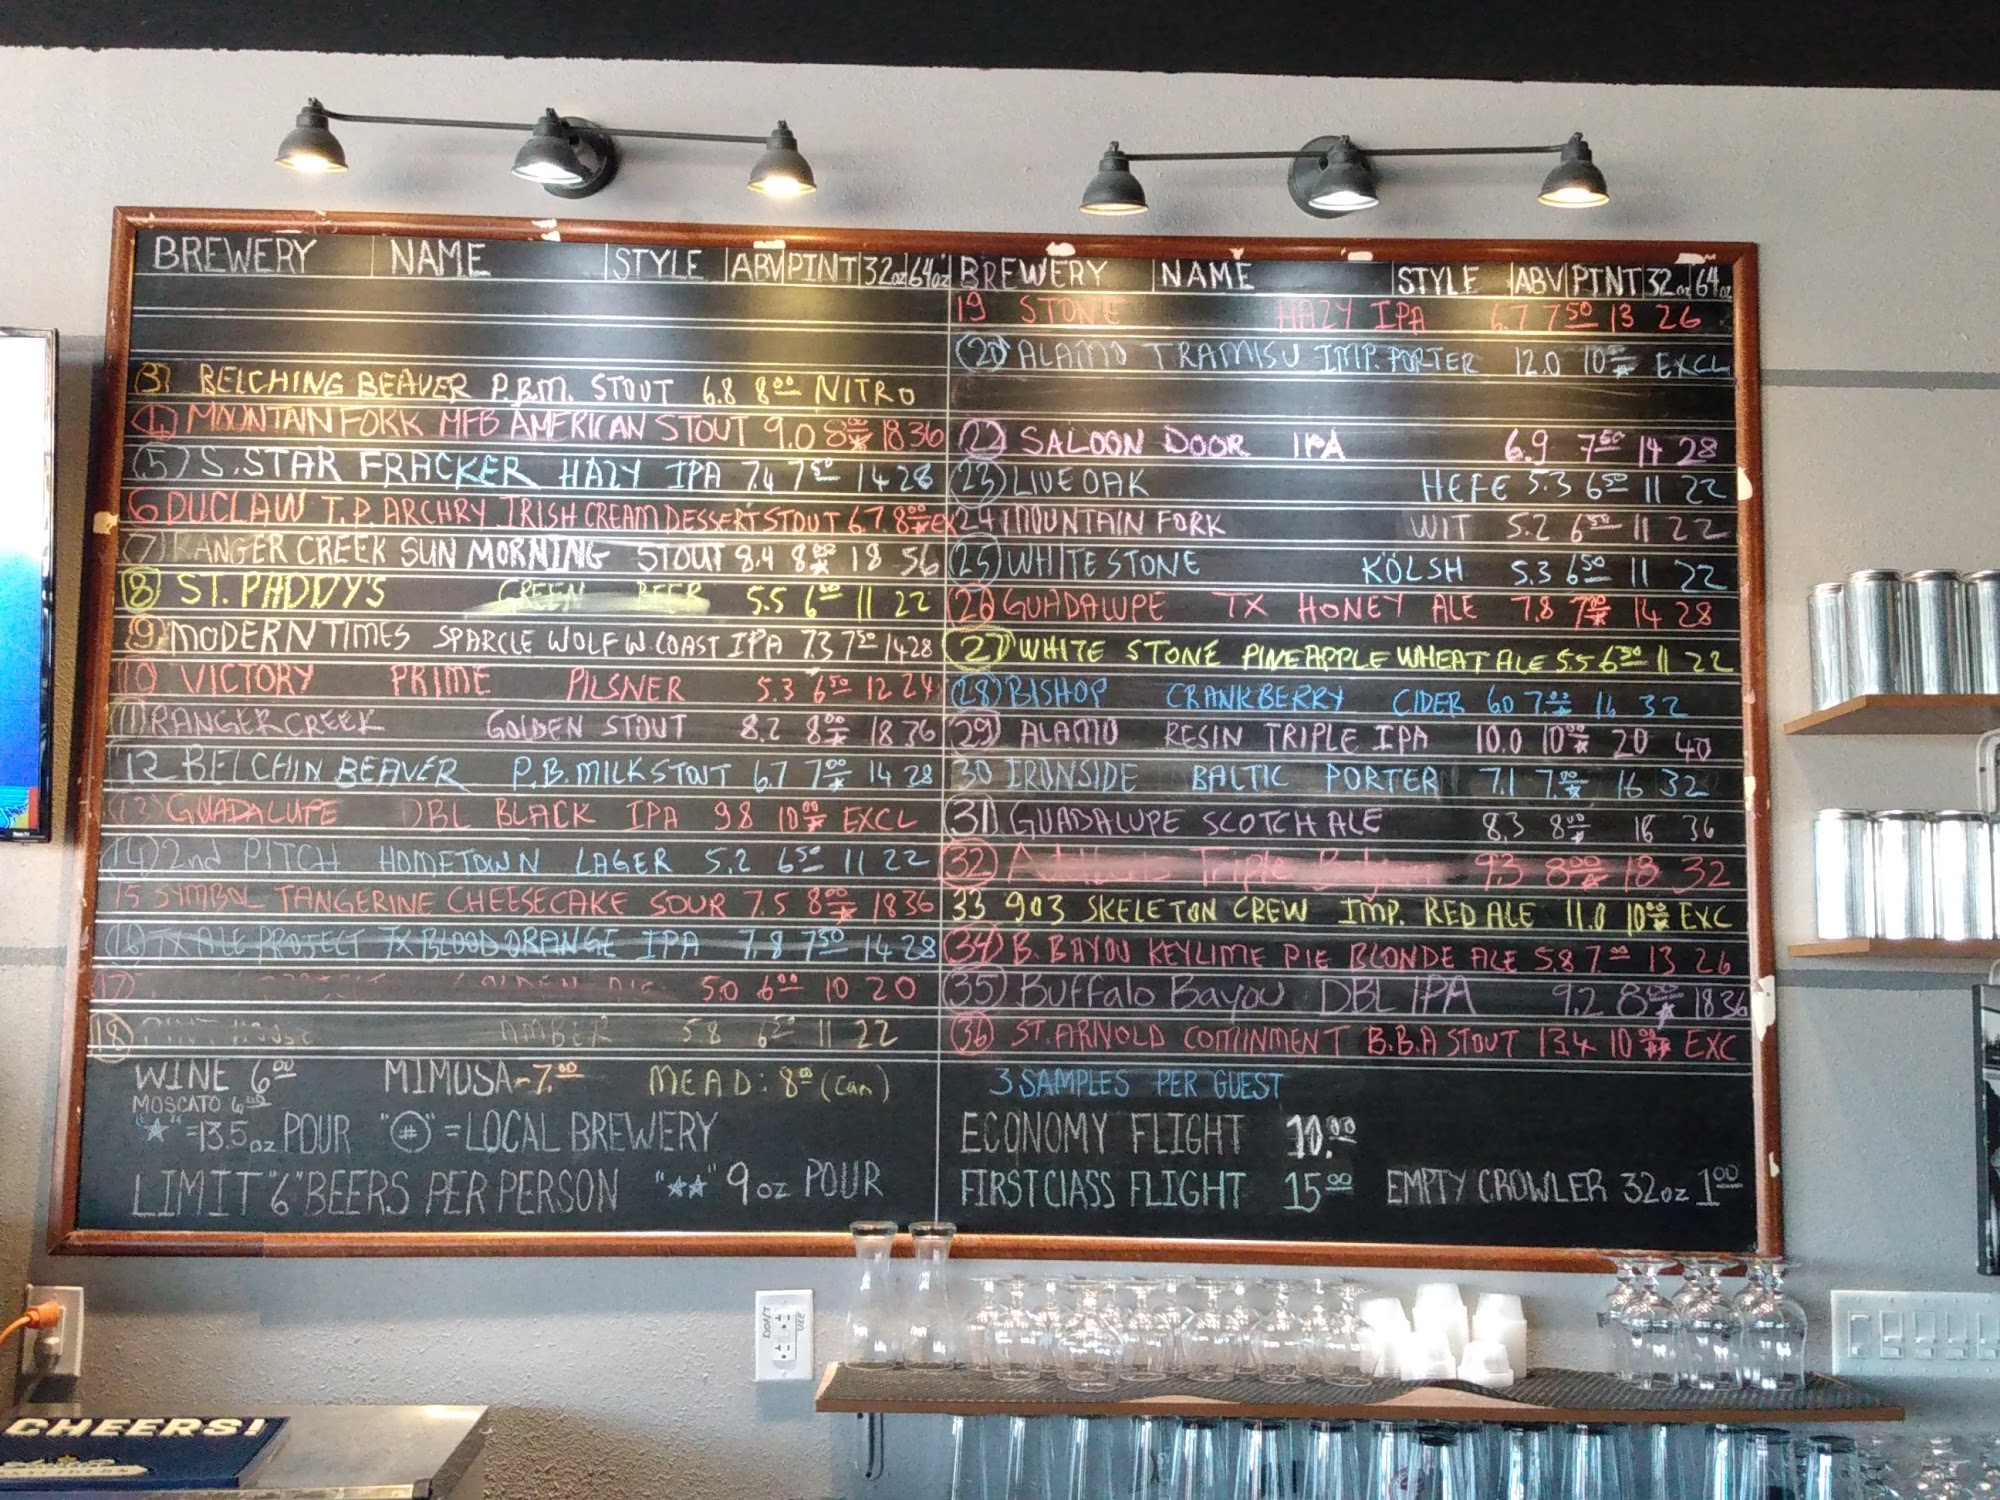 BREWERY NAME STYLE ABV PINT 32oz 64oz
3 BELCHING BEAVER P.B.M. STOUT 6.8 8.00 NITRO
4 MOUNTAIN FORK MFB AMERICAN STOUT 9.0 8.00* 18 36
5 S.STAR FRACKER HAZY IPA 7.4 7.50 14 28
6 DUCLAW T.P. ARCHRY IRISH CREAM DESSERT STOUT 6.7 8.00* EX
7 RANGER CREEK SUN MORNING STOUT 8.4 8.00* 18 36
8 ST. PADDY'S GREEN BEER 5.5 6.50 11 22
9 MODERN TIMES SPARCLE WOLF W. COAST IPA 7.3 7.50 14 28
10 VICTORY PRIME PILSNER 5.3 6.50 12 24
11 RANGER CREEK GOLDEN STOUT 8.2 8.00* 18 36
12 BELCHIN BEAVER P.B. MILK STOUT 6.7 7.00* 14 28
13 GUADALUPE DBL BLACK IPA 9.8 10.00* EXCL
14 2nd PITCH HOMETOWN LAGER 5.2 6.50 11 22
15 SYMBOL TANGERINE CHEESECAKE SOUR 7.5 8.00* 18 36
16 TX ALE PROJECT TX BLOOD ORANGE IPA 7.8 7.50 14 28
17 5.0 6.00 10 20
18 AMBER 5.8 6.50 11 22
WINE 6.00 MIMOSA-7.00 MEAD: 8.00 (Can)
MOSCATO 6.00
"*"=13.5oz POUR "#"=LOCAL BREWERY
LIMIT "6" BEERS PER PERSON "**" 9oz POUR
BREWERY NAME STYLE ABV PINT 32oz 64oz
19 STONE HAZY IPA 6.7 7.50 13 26
20 ALAMO TRAMISU IMP. PORTER 12.0 10.00* EXCL
22 SALOON DOOR IPA 6.9 7.50 14 28
23 LIVE OAK HEFE 5.3 6.50 11 22
24 MOUNTAIN FORK WIT 5.2 6.50 11 22
25 WHITESTONE KÖLSH 5.3 6.50 11 22
26 GUADALUPE TX HONEY ALE 7.8 7.00* 14 28
27 WHITE STONE PINEAPPLE WHEAT ALE 5.5 6.50 11 22
28 BISHOP CRANKBERRY CIDER 6.0 7.00* 16 32
29 ALAMO RESIN TRIPLE IPA 10.0 10.00* 20 40
30 IRONSIDE BALTIC PORTER 7.1 7.00* 16 32
31 GUADALUPE SCOTCH ALE 8.3 8.00* 16 36
32 Triple 9.3 8.00* 18 32
33 903 SKELETON CREW IMP. RED ALE 11.0 10.00* EXC
34 B. BAYOU KEYLIME PIE BLONDE ALE 5.8 7.00 13 26
35 Buffalo Bayou DBL IPA 9.2 8.00* 18 36
36 ST. ARNOLD COMINMENT B.B.A STOUT 13.4 10.00** EXC
3 SAMPLES PER GUEST
ECONOMY FLIGHT 10.00
FIRST CLASS FLIGHT 15.00 EMPTY CROWLER 32oz 1.00
DON'T USE
CHEERS!